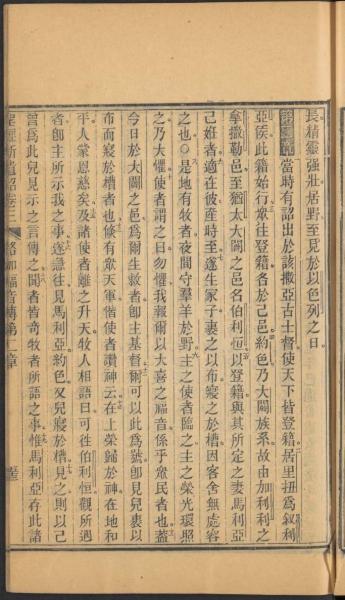 長精靈强壯居野至見於以色列之日
第二章當時有詔出於該撒亞古士督使天下皆登籍居里扭爲叙利
亞侯此籍始行衆往登籍各於己邑約色乃大闢族系故由加利利之
拿撒勒邑至猶太大闢之邑名伯利恒以登籍與其所定之妻馬利亞
己姙者適在彼産時至遂生冢子裹之以布寢之於槽因客舍無處容
之也○是地有牧者夜間守羣羊於野主之使者臨之主之榮光環照
之乃大懼使者謂之曰勿懼我報爾以大喜之福音係乎衆民者也蓋
今日於大闢之邑爲爾生救者卽主基督爾可以此爲號卽見兒裹以
布而寢於槽者也倏有衆天軍偕使者讚神云在上榮歸於神在地和
平人蒙恩慈矣及諸使者離之升天牧人相語曰可往伯利恒觀所遇
者卽主所示我之事遂急往見馬利亞約色又兒寢於槽見之則以己
嘗爲此兒見示之言傳之聞者皆奇牧者所語之事惟馬利亞存此諸
聖經新遺詔卷三 路加福音傳第二章